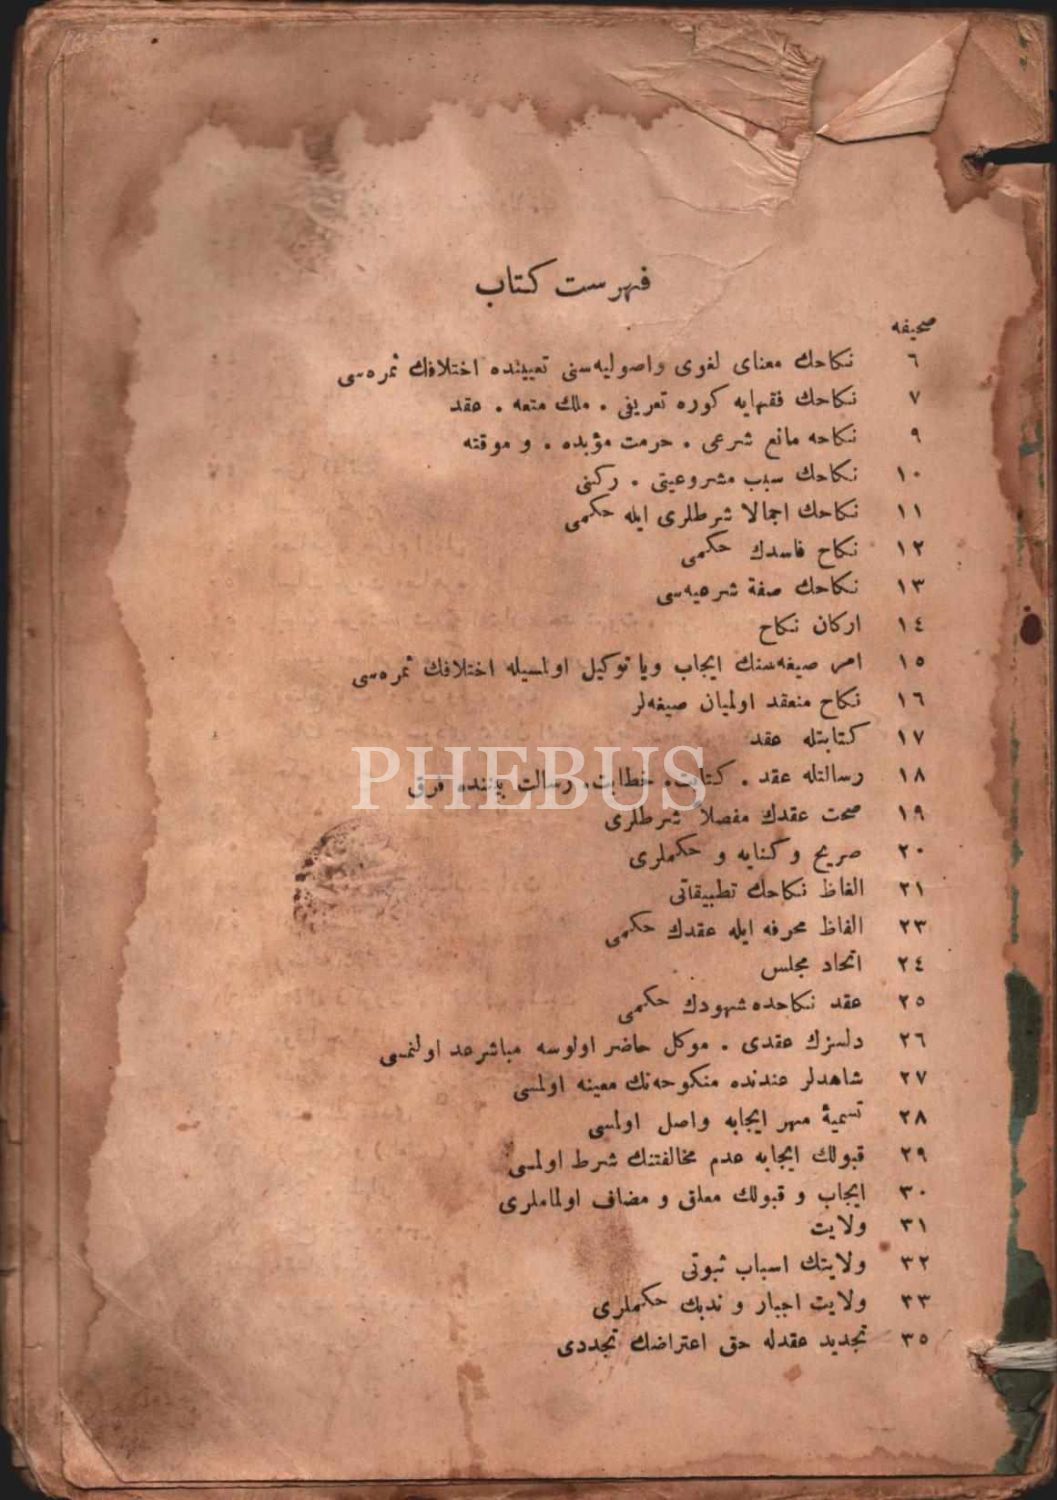 فهرست كتاب
صحيفه
٦ نكاحك معنای لغوی واصوليه‌سنی تعييننده اختلافك ثمره‌سی
٧ نكاحك فقهايه كوره تعريفی . ملك متعه . عقد
٩ نكاحه مانع شرعی . حرمت مؤبده . و موقته
١٠ نكاحك سبب مشروعيتی . ركنی
١١ نكاحك اجمالا شرطلری ايله حكمی
١٢ نكاح فاسدك حكمی
١٣ نكاحك صفة شرعيه‌سی
١٤ اركان نكاح
١٥ امر صيغه‌سنك ايجاب ويا توكيل اولمسيله اختلافك ثمره‌سی
١٦ نكاح منعقد اولميان صيغه‌لر
١٧ كتابتله عقد
١٨ رسالتله عقد . كتابت، خطابت، رسالت بيننده فرق
١٩ صحت عقدك مفصلاً شرطلری
٢٠ صريح و كنايه و حكملری
٢١ الفاظ نكاحك تطبيقاتی
٢٣ الفاظ محرفه ايله عقدك حكمی
٢٤ اتحاد مجلس
٢٥ عقد نكاحده شهودك حكمی
٢٦ دلسزك عقدی . موكل حاضر اولوسه مباشرعد اولنمسی
٢٧ شاهدلر عندنده منكوحه‌نك معينه اولمسی
٢٨ تسميۀ مهر ايجابه واصل اولمسی
٢٩ قبولك ايجابه عدم مخالفتنك شرط اولمسی
٣٠ ايجاب و قبولك معلق و مضاف اولماملری
٣١ ولايت
٣٢ ولايتك اسباب ثبوتی
٣٣ ولايت اجبار و ندبك حكملری
٣٥ تجديد عقدله حق اعتراضك تجددی
PHEBUS